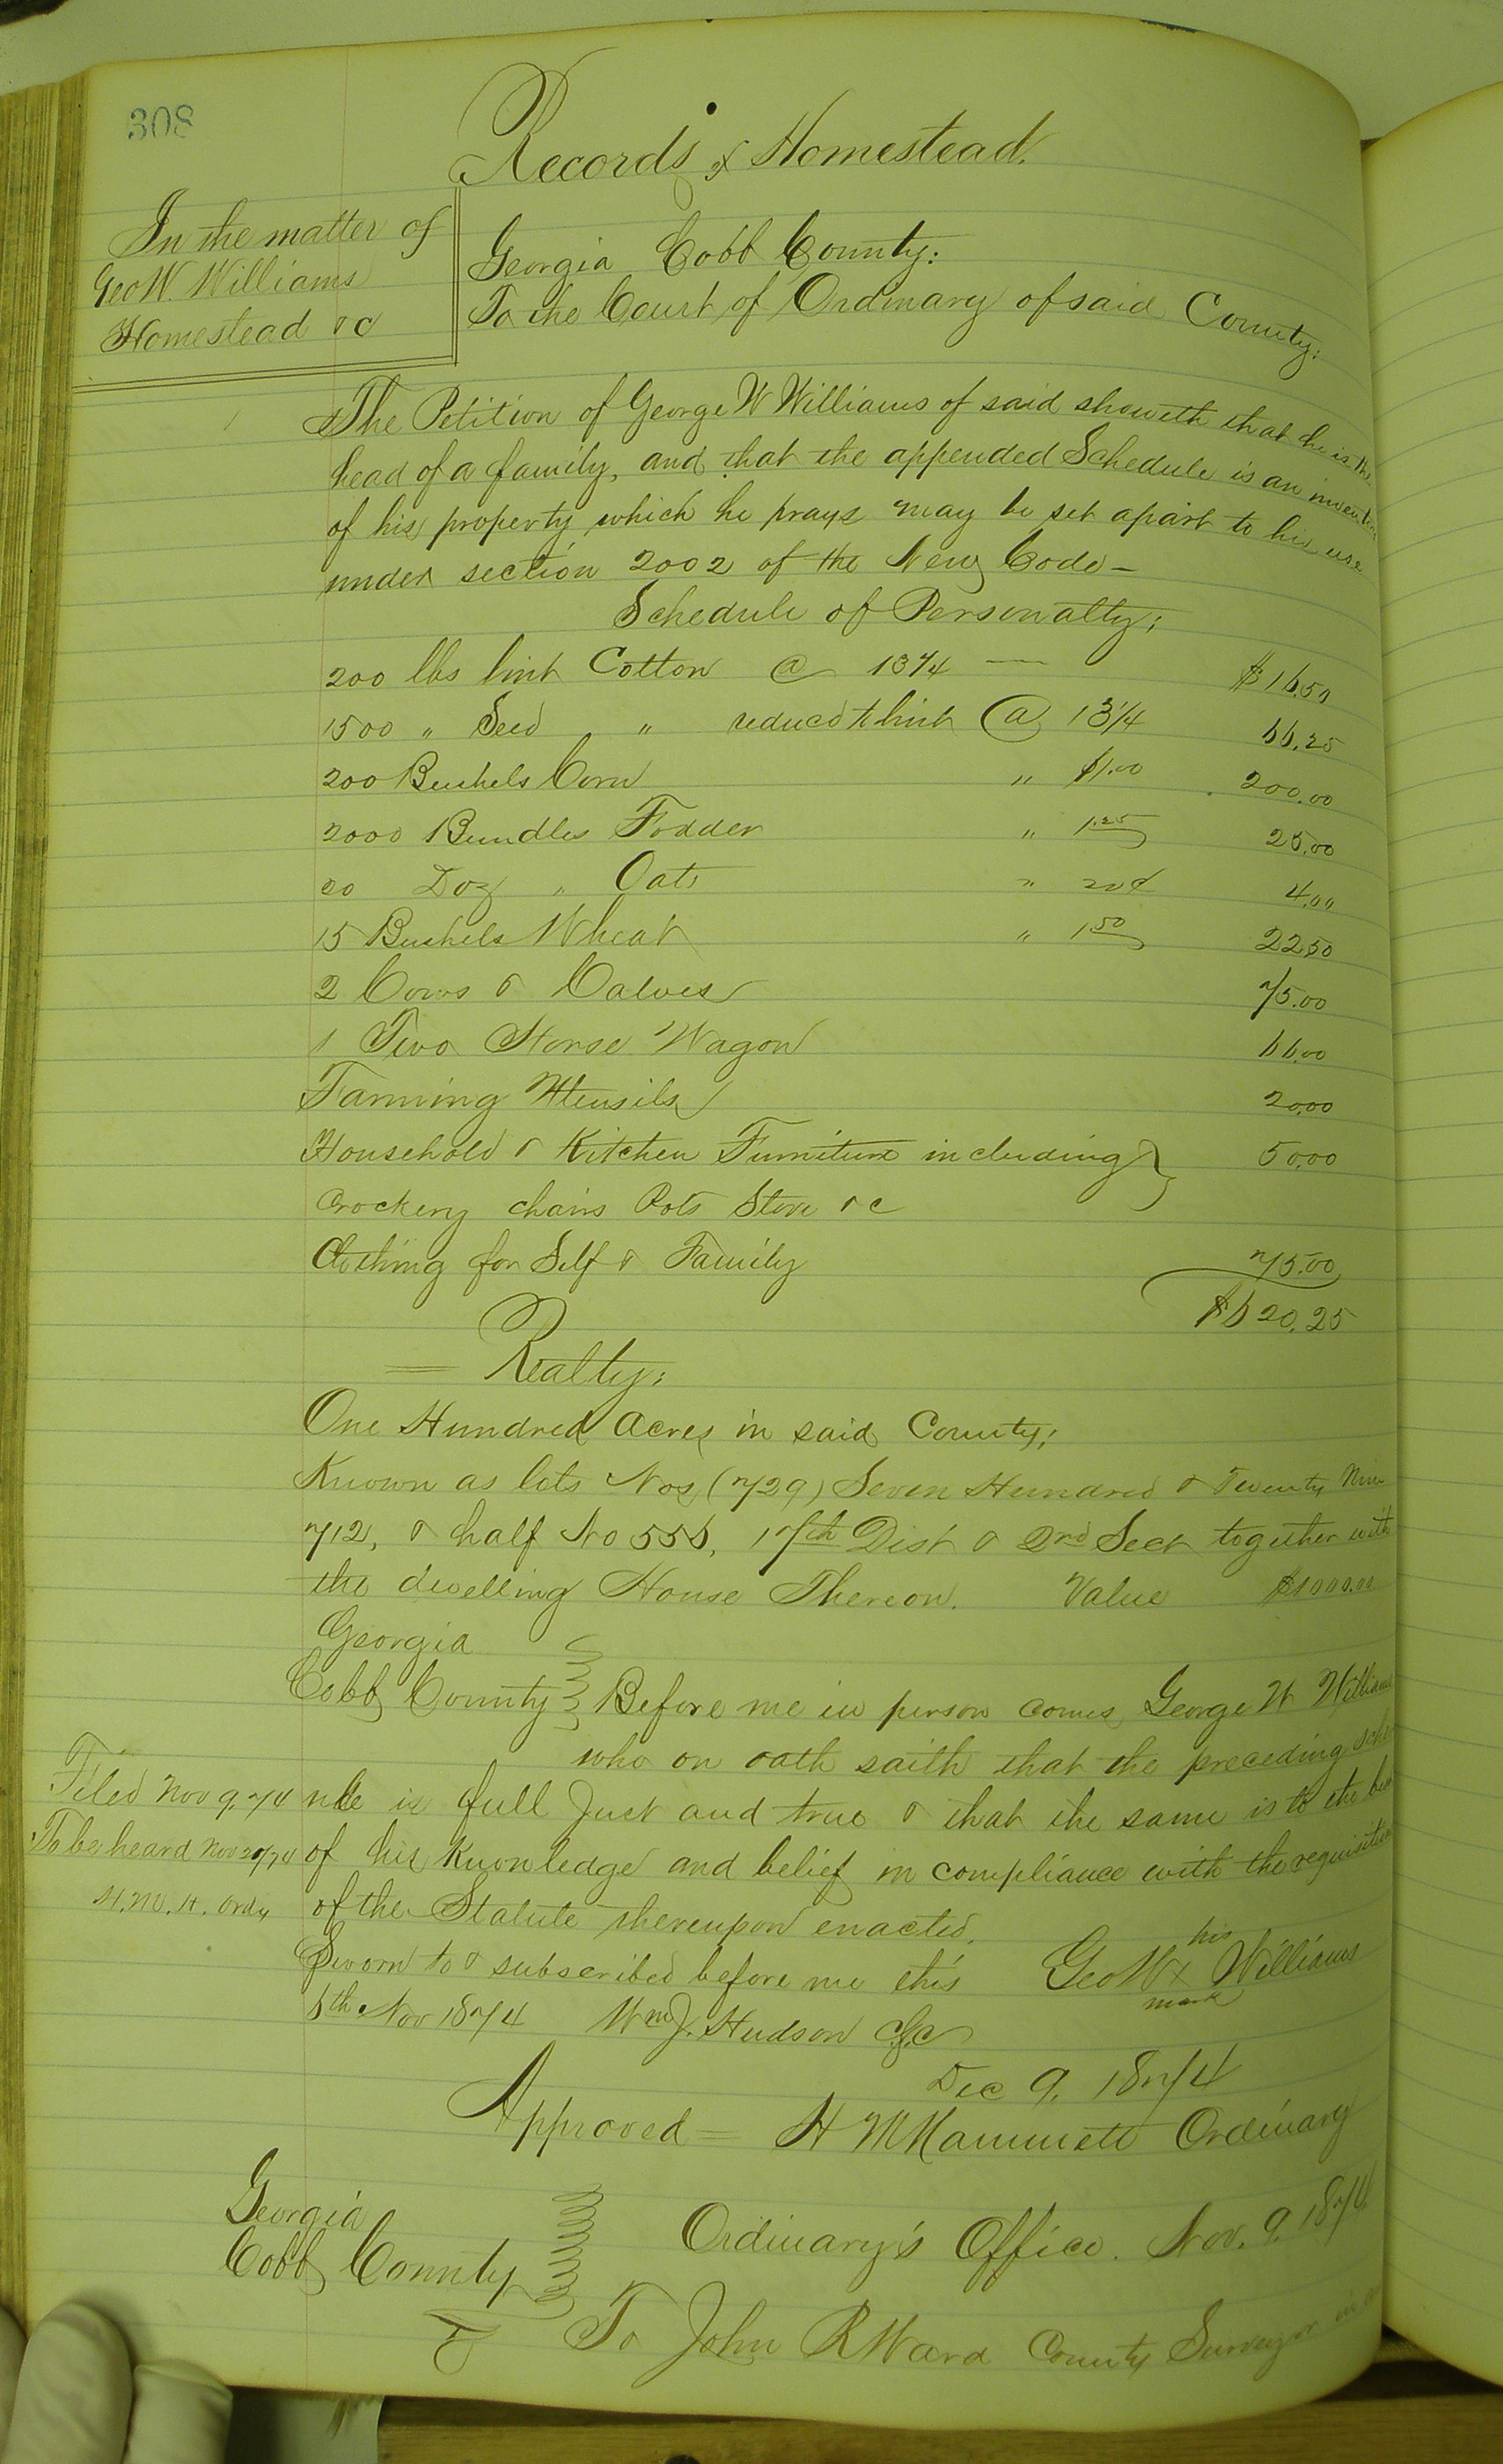 308
Records of Homestead.
In the matter of
Geo W. Williams
Homestead &c
Georgia Cobb County:
To the Court of Ordinary of said County:
The Petition of George W Williams of said showeth that he is the
head of a family, and that the appended Schedule is an
of his property which he prays may be set apart to his use
under section 2002 of the New Code -
Schedule of Personalty;
200 lbs lint Cotton @ 13¼ — $16.50
1500 " Seed " reduced to lint @ 13¼ 66.25
200 Bushels Corn " $1.00 200.00
2000 Bundles Fodder " 1.25 25.00
20 Doz " Oats " 20¢ 4.00
15 Bushels Wheat " 1.50 22.50
2 Cows & Calves 75.00
1 Two Horse Wagon 66.00
Farming Utensils 20.00
Household & Kitchen Furniture including 50.00
crockery chairs Pots Stove &c
Clothing for Self & Family 75.00
$620.25
Realty:
One Hundred acres in said County;
Known as lots Nos (729) Seven Hundred & Twenty Nine
712, & half No 556, 17th Dist & 2nd Sect together with
the dwelling House Thereon. Value $1000.00
Georgia
Cobb County Before me in person comes George W Williams
who on oath saith that the preceding sched
Filed Nov 9. 74 ule is full Just and true & that the same is to the best
To be heard Nov 20/74 of his Knowledge and belief in compliance with the requisition
H.M.H. Ordy of the Statute thereupon enacted.
Sworn to & subscribed before me this Geo W his x mark Williams
6th Nov 1874 Wm J. Hudson
Dec 9. 1874
Approved = H M Hammett Ordinary
Georgia
Cobb County Ordinary's Office. Nov. 9. 1874
To John R Ward County Surveyor